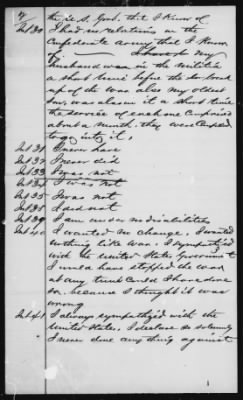 the U.S. Govt. that I know of
Int 30 I had no relations in the
Confederate army that I know
of. Though my
husband was in the militia
a short time before the
up of the was also my oldest
son, was also in it a short time
the service of each one comprised
about a month. they were
to go into it,
Int 31 I never have
Int 32 I never did
Int 33 I was not
Int 34 I was not
Int 35 I was not
Int 38 I did not
Int 39 I am under no disabilities
Int 40 I wanted no change. I wanted
nothing like war. I sympathized
with the United States Government
I would have stopped the war
at any time could I have done
so, because I thought it was
wrong
Int 41 I always sympathized with the
United States. I declare so solemnly
I never done any thing against